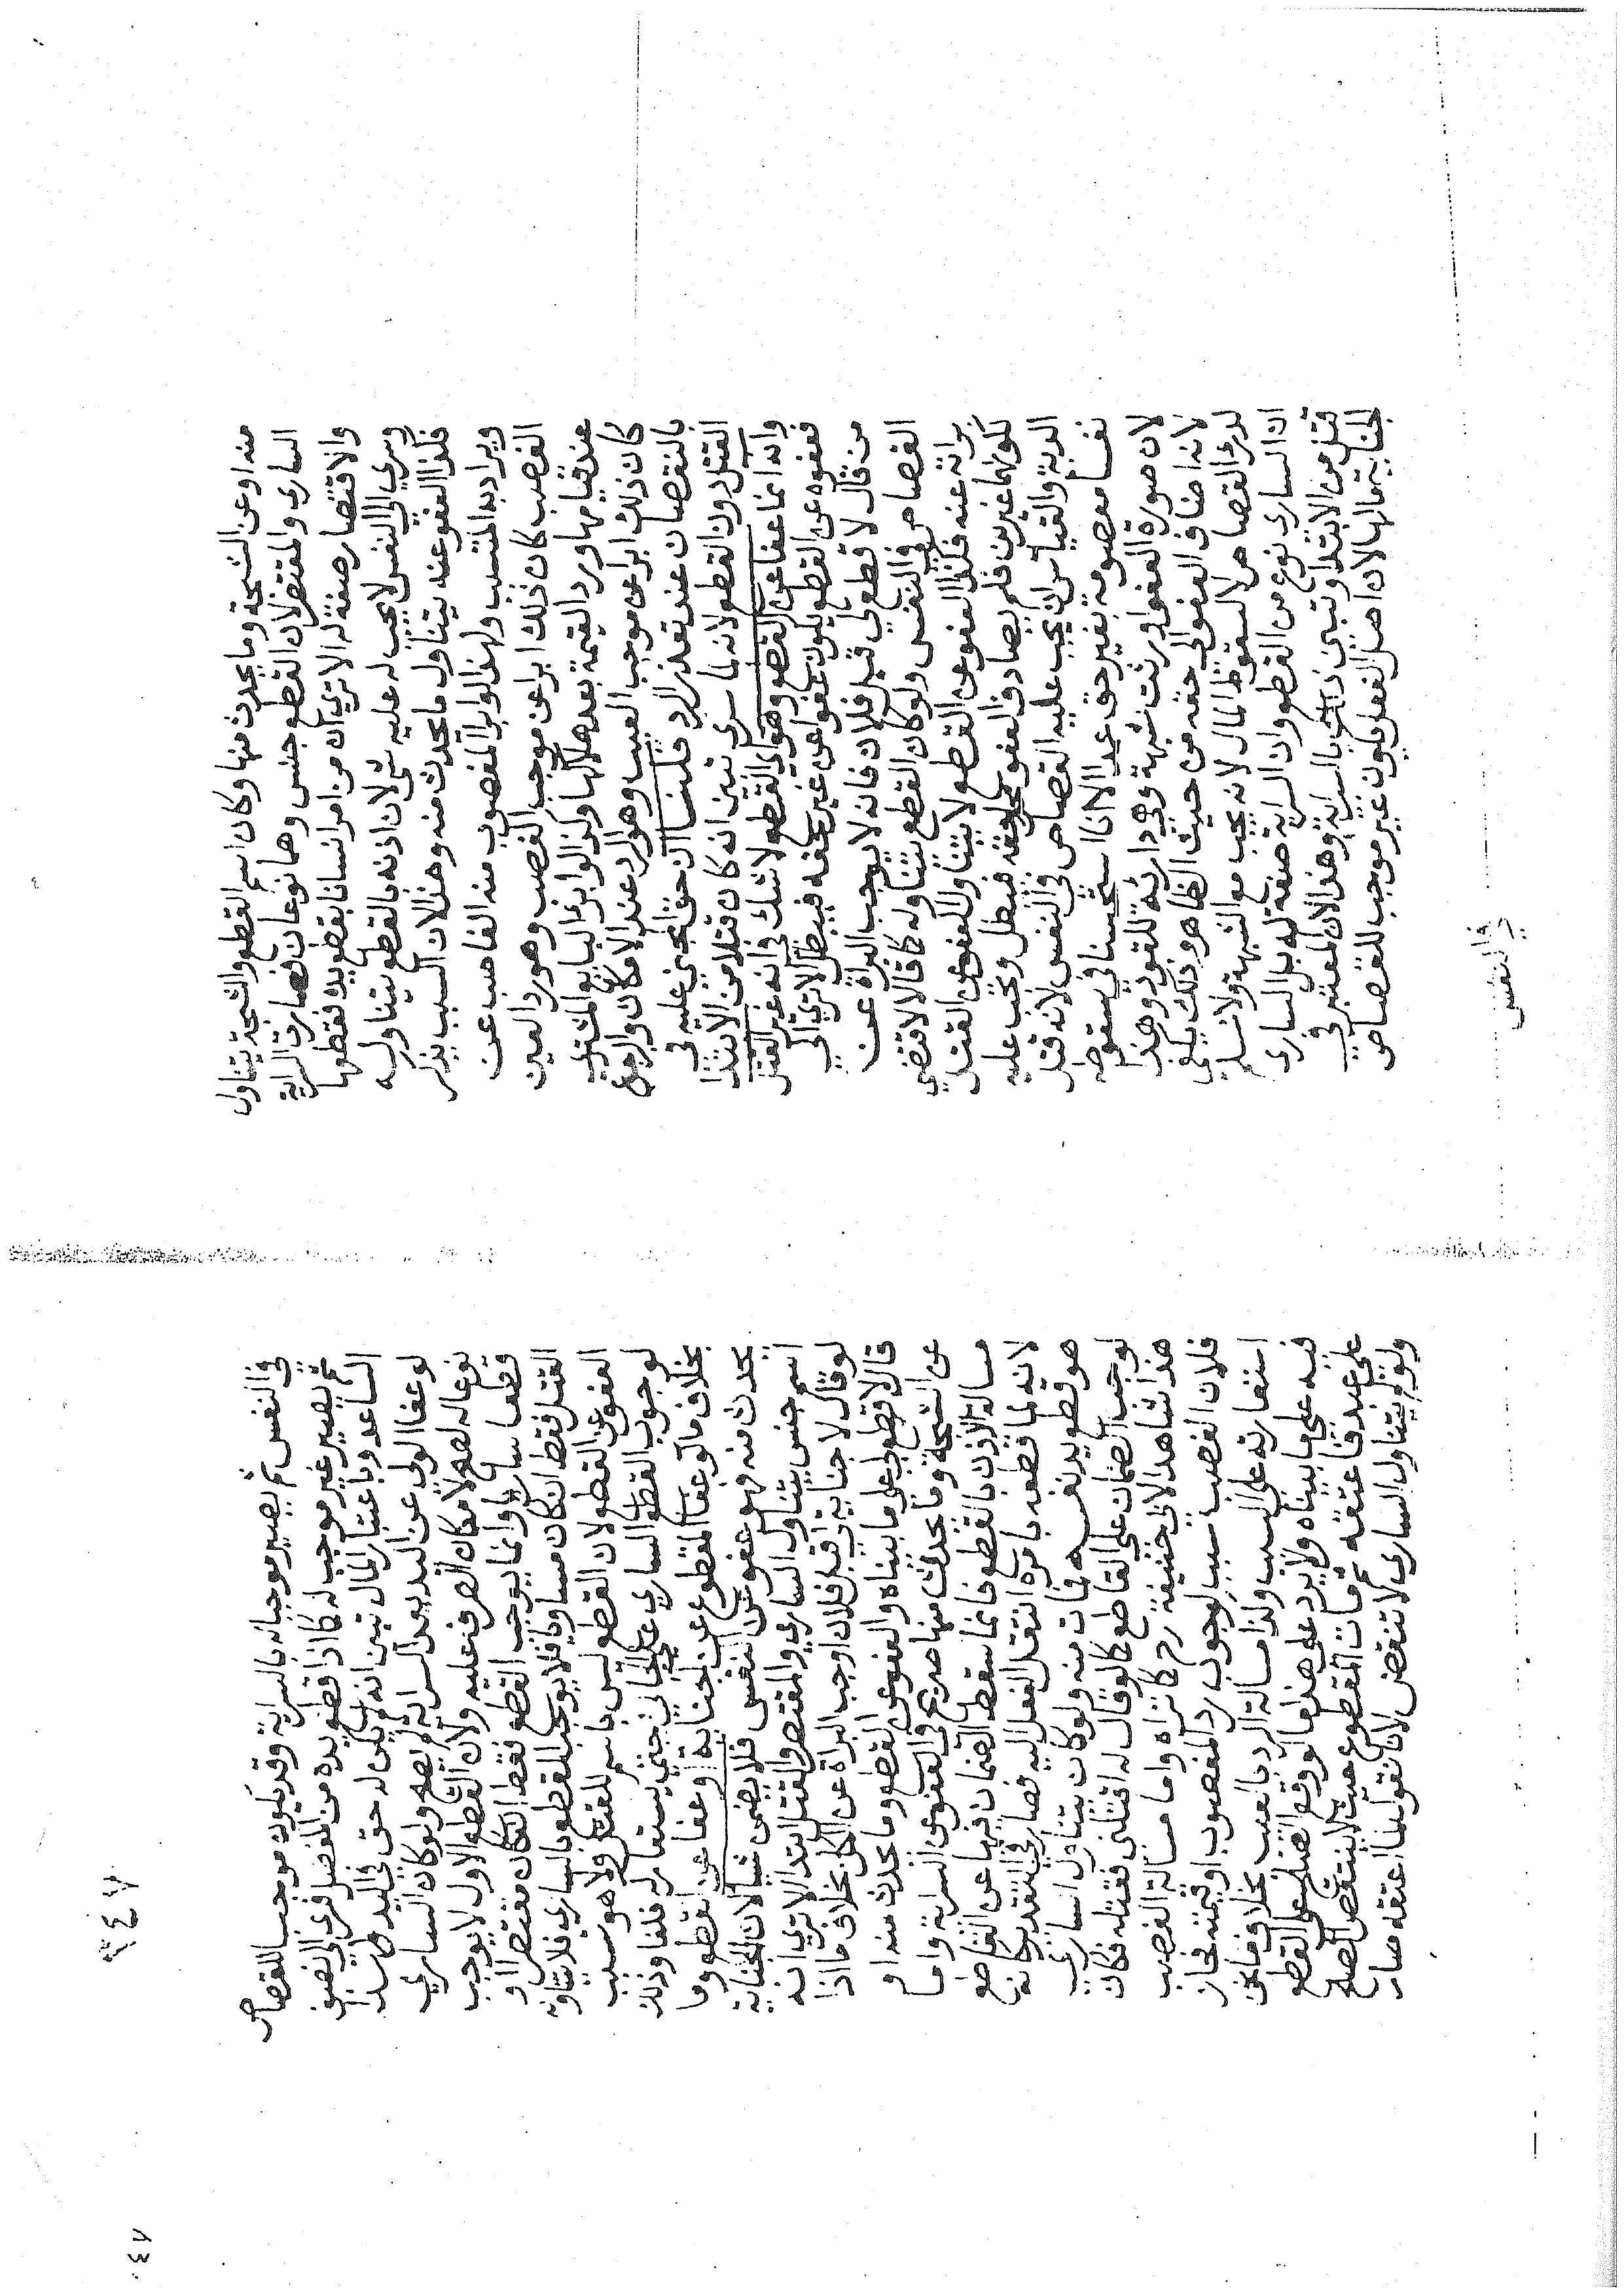 منه او عن الشجة وما يحدث منها وكان اسم القطع والشجة يتناول
الساري والمقتصر لان القطع جنس وهما نوعان فصارت السراية
والاقتصار صفة له الا تري ان من امر انسانا بقطع يده فقطعها
وسري الي النفس لا يجب له عليه شي لان اذنه بالقطع يتناوله
فكذا العفو عنه يتناول ما يحدث منه وهذا لان السبب يذكر
ويراد به المسبب ولهذا لو ابرا المغصوب منه الغاصب عن
الغصب كان ذلك ابرا عن موجب الغصب وهو رد العين
عند قيامها ورد القيمة بعد هلاكها وكذا لو ابرا البايع المشتري
كان ذلك ابرا عن موجب العيب وهو الرد عند الامكان والرجوع
بالنقصان عند تعذر الرد قلنا ان حق المجني عليه في
القتل دون القطع لانه لما سري تبين انه كان قتلا من الابتدا
وانه انما عفا عن القطع وهو اي القطع لا شك في انه غير القتل
فعفوه عن القطع يكون عفوا عن غير حقه فيبطل الا تري الي
من قال لا قطع لي قبل فلان فانه لا يوجب البراة عن
القصاص في النفس ولو كان القطع يتناوله كما قالا لاقتضي
براته عنه فكذا العفو عن القطع لا يتناول العفو عن القتل
لكونهما غيرين فلم يصادف العفو حقه فيبطل وتجب عليه
الدية والقياس ان يجب عليه القصاص في النفس لانه قتل
نفسا معصومة بغير حق عمدا الا انا استحسنا في سقوطه
لان صورة العفو اورثت شبهة وهي دارئة للقود وهذا
لانه اضاف العفو الي حقه من حيث الظاهر وذلك يكفي
لدرء القصاص لا لسقوط المال لانه يجب مع الشبهة ولا نسلم
ان الساري نوع من القطع وان السراية صفة له بل الساري
قتل من الابتدا وتبين ذلك بالسراية وهذا لان المعتبر في
الجناية مالها لان اصل الفعل يكون غير موجب للقصاص
في النفس
في النفس ثم يصير موجبا له بالسراية وقد يكون موجب للقصاص
ثم يصير غير موجب له كما اذا قطع يده من المفصل فبري الي نصف
الساعد وباعتبار المال تبين انه لم يكن له حق في اليد
لو عفا الولي عن اليد بعد السراية لم يصح ولو كان الساري
نوعا له لصح لامكان الصرف عليه ولان القطع الاول لا يوجب
قطعا ساريا وانما يوجب القطع فقط ان كان مقتصرا او
القتل فقط ان كان ساريا فلا يوجب القطع بالساري فلا يتناوله
العفو عن القطع لان القطع ليس باسم للقتل ولا هو سبب
لوجوب القطع الساري علي الجاني حتي يستعار له فلغا وذلك
بخلاف ما لو عفا المقطوع عن الجناية او عفا عن القطع وما
يحدث منه فهو عفو عن النفس فلا يضمن شيا لان الجناية
اسم جنس يتناول الساري والمقتصر والقتل ابتدا الا تري انه
لو قال لا جناية لي قبل فلان اوجب البراة عن الكل بخلاف ما اذا
قال لا قطع لي علي ما بيناه والعفو عن القطع وما يحدث منه او
عن الشجة وما يحدث منها صريح في العفو عن السراية واما
مسالة الاذن بالقطع فانما سقط الضمان فيها عن القاطع
لانه لما قطعه بامره انتقل الفعل اليه فصار في التقدير كانه
هو قطع يد نفسه فمات منه ولو كان يتناول الساري
لوجب الضمان علي القاطع كما لو قال له اقتلني فقتله فكان
هذا شاهدا لابي حنيفة رح كما تراه واما مسالة الغصب
فلان الغصب سبب لوجوب رد المغصوب او قيمته فجاز
استعارته علي السبب وكذا مسالة الرد بالعيب بخلاف ما نحن
فيه علي ما بيناه ولا يرد علي هذا ما لو وقع الصلح عن القطع
علي عبد فاعتقه ثم مات المقطوع حيث لا ينتقض الصلح
ولو لم يتناول الساري لانتقض لانا نقول لما اعتقه صار
٣٤٧
٤٧